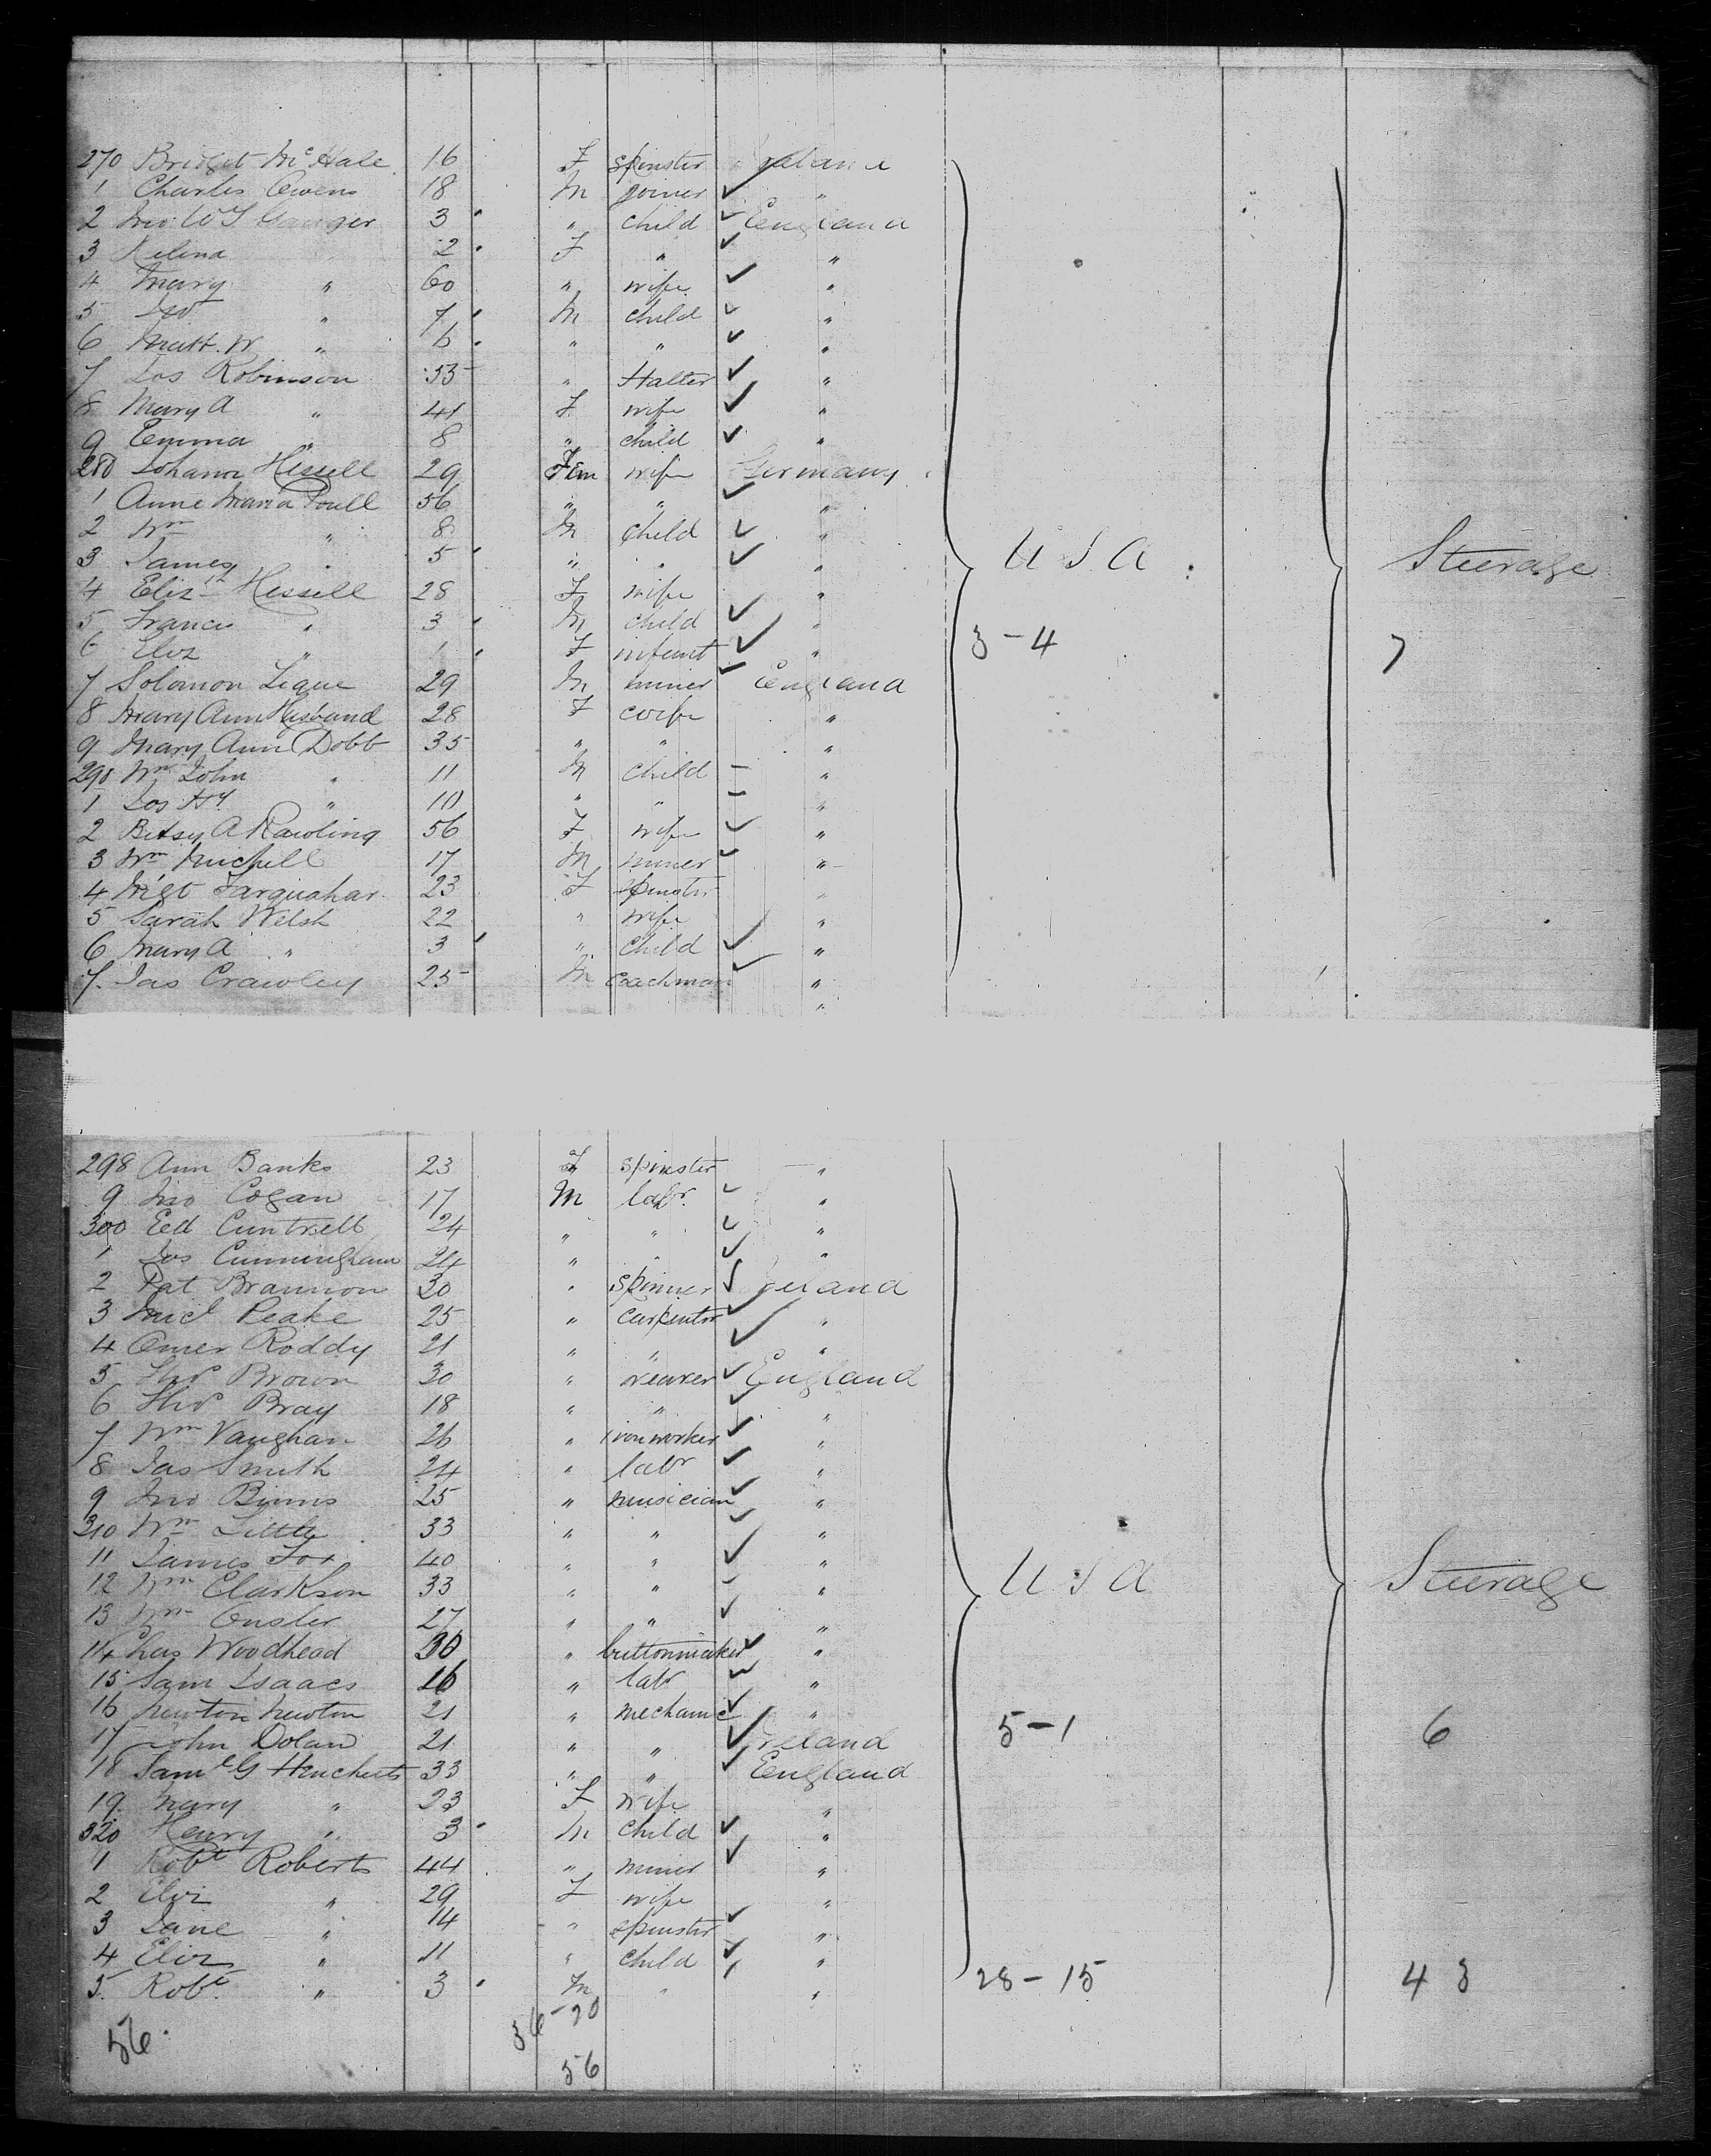 270 Bridget McHale 16 F spinster Ireland
1 Charles Owens 18 M joiner ✓ "
2 Jno W S Gauger 3 " child ✓ England
3 Selina 2 F " ✓ "
4 Mary " 60 " wife ✓ "
5 " 7 M child ✓ "
6 Matt. W " 6 " " ✓ "
7 Jos Robinson 53 " Hatter ✓ "
8 Mary A " 41 F wife ✓ "
9 Emma " 8 " child ✓ "
280 Johanna Hessell 29 Fem wife Germany
1 Anne Maria Poull 56 " " ✓ "
2 Wm " 8 M child ✓ "
3 James " 5 " " ✓ "
U S A Steerage
4 Elizth Hessell 28 F wife "
5 Francis " 3 M child ✓ "
6 Eliz " 1 F infant ✓ "
3-4 7
7 Solomon Legue 29 M miner ✓ England
8 Mary Ann Husband 28 F wife "
9 Mary Ann Dobb 35 " " "
290 Wm John " 11 M child – "
1 Jos Hy " 10 " " – "
2 Betsy A Rawling 56 F wife ✓ "
3 Wm Michell 17 M miner ✓ "
4 Migt Farquahar 23 F spinster "
5 Sarah Welsh 22 " wife "
6 Mary A " 3 " child ✓ "
7 Jas Crawley 25 M Coachman ✓ "
"
298 Ann Banks 23 F spinster "
9 Jno Cogan 17 M labr ✓ "
300 Ed Cuntrell 24 " " ✓ "
1 Jos Cunningham 24 " " ✓ "
2 Pat Brannon 30 " Spinner ✓ Ireland
3 Micl Peake 25 " Carpenter ✓ "
4 Omer Roddy 21 " " ✓ "
5 Thos Brown 30 " weaver ✓ England
6 Thos Bray 18 " " ✓ "
7 Wm Vaughan 26 " ironworker ✓ "
8 Jas Smith 24 " labr ✓ "
9 Jno Binns 25 " musician ✓ "
310 Wm Little 33 " " ✓ "
11 James Fox 40 " " ✓ "
12 Wm Clarkson 33 " " ✓ "
U S A Steerage
13 Wm Ousler 27 " " ✓ "
14 Chas Woodhead 30 " buttonmaker ✓ "
15 Sam Isaacs 16 " labr ✓ "
16 Newton Newton 21 " mechanic ✓ "
5-1 6
17 John Dolan 21 " " ✓ Ireland
18 Saml G Hincheets 33 " " ✓ England
19 Mary " 23 F wife "
320 Henry " 3 M child ✓ "
1 Robt Roberts 44 " miner ✓ "
2 Eliz " 29 F wife "
3 Jane " 14 " spinster ✓ "
4 Eliz " 11 " child ✓ "
5 Robt " 3 M " ✓ "
28-15 43
36-20
56
56